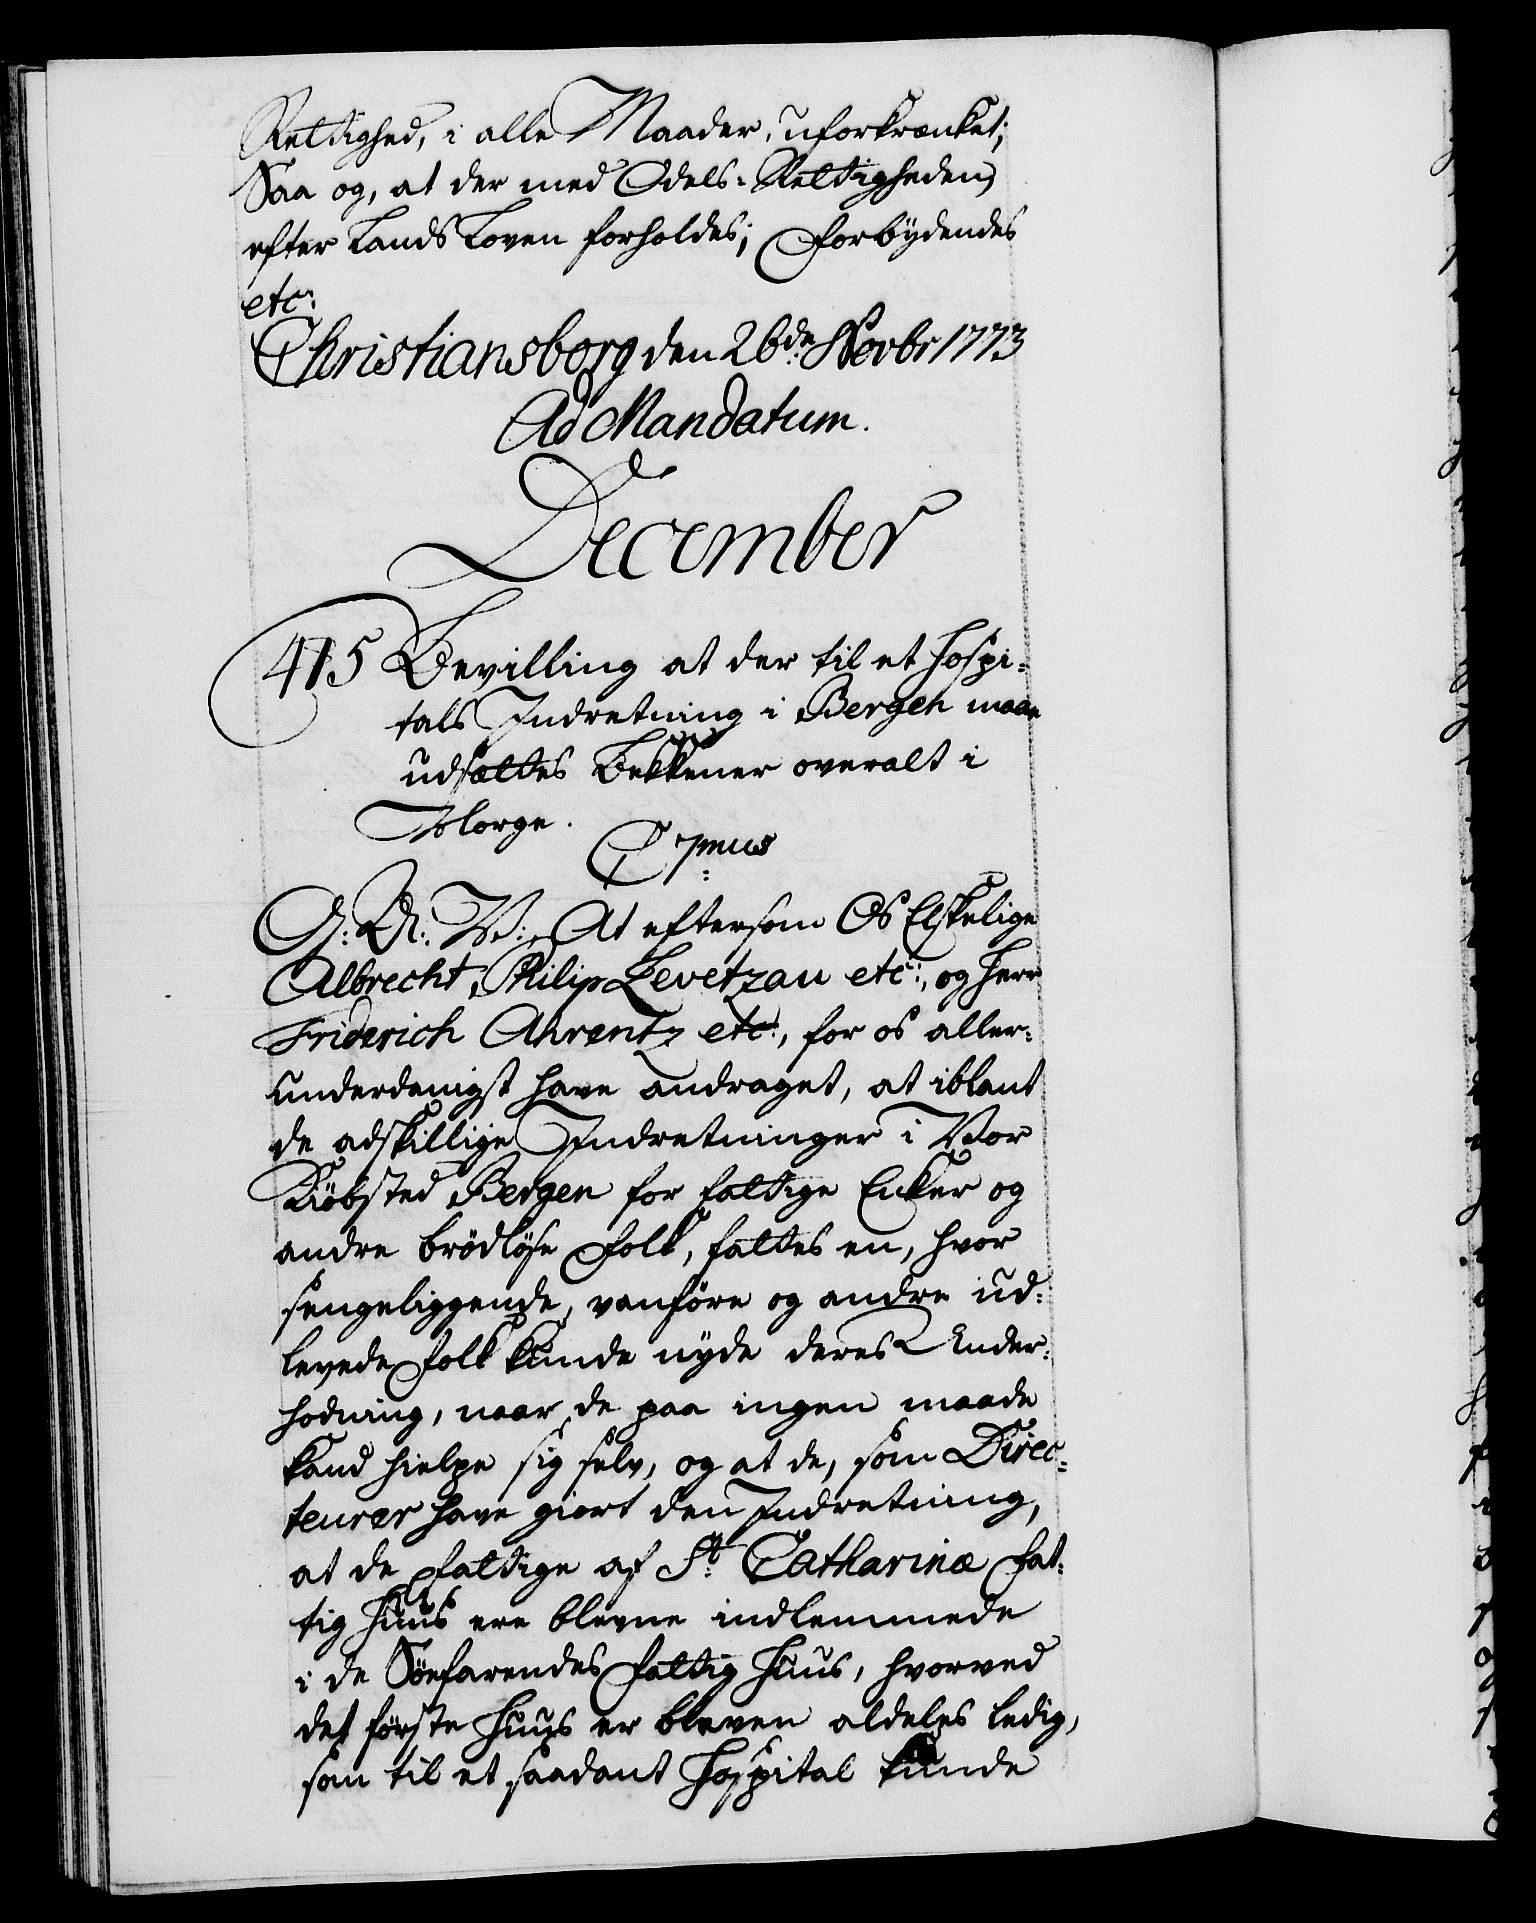 Rettighed, i alle Maader, uforkrænket;
Saa og, at der med Odels-Rettigheden
efter Lands Loven forholdes; Forbydendes
etc:
Christiansborg den 26de Novbr 1773
Ad Mandatum.
December
415 Bevilling at der til et Hospi-
tals Indretning i Bergen maae
udsættes Bekkener overalt i
Norge.
C 7mus
G: A: V:, At eftersom Os Elskelige
Albrecht, Philip Levetzau etc:, og Herr
Friderich Ahrentz etc:, for os aller-
underdanigst have andraget, at iblant
de adskillige Indretninger i Vor
Kiøbsted Bergen for fattige Enker og
andre brødløse Folk, fattes en, hvor
sengeliggende, vanføre og andre ud-
levede Folk kunde nyde deres Under-
hodning, naar de paa ingen maade
kand hielpe sig selv, og at de, som Direc-
teurer have giort den Indretning,
at de fattige af St: Catharinæ Fat-
tig Huus ere blevne indlemmede
i de Søefarendes Fattig Huus, hvorved
det første Huus er bleven aldeles ledig,
som til et saadant Hospital kunde